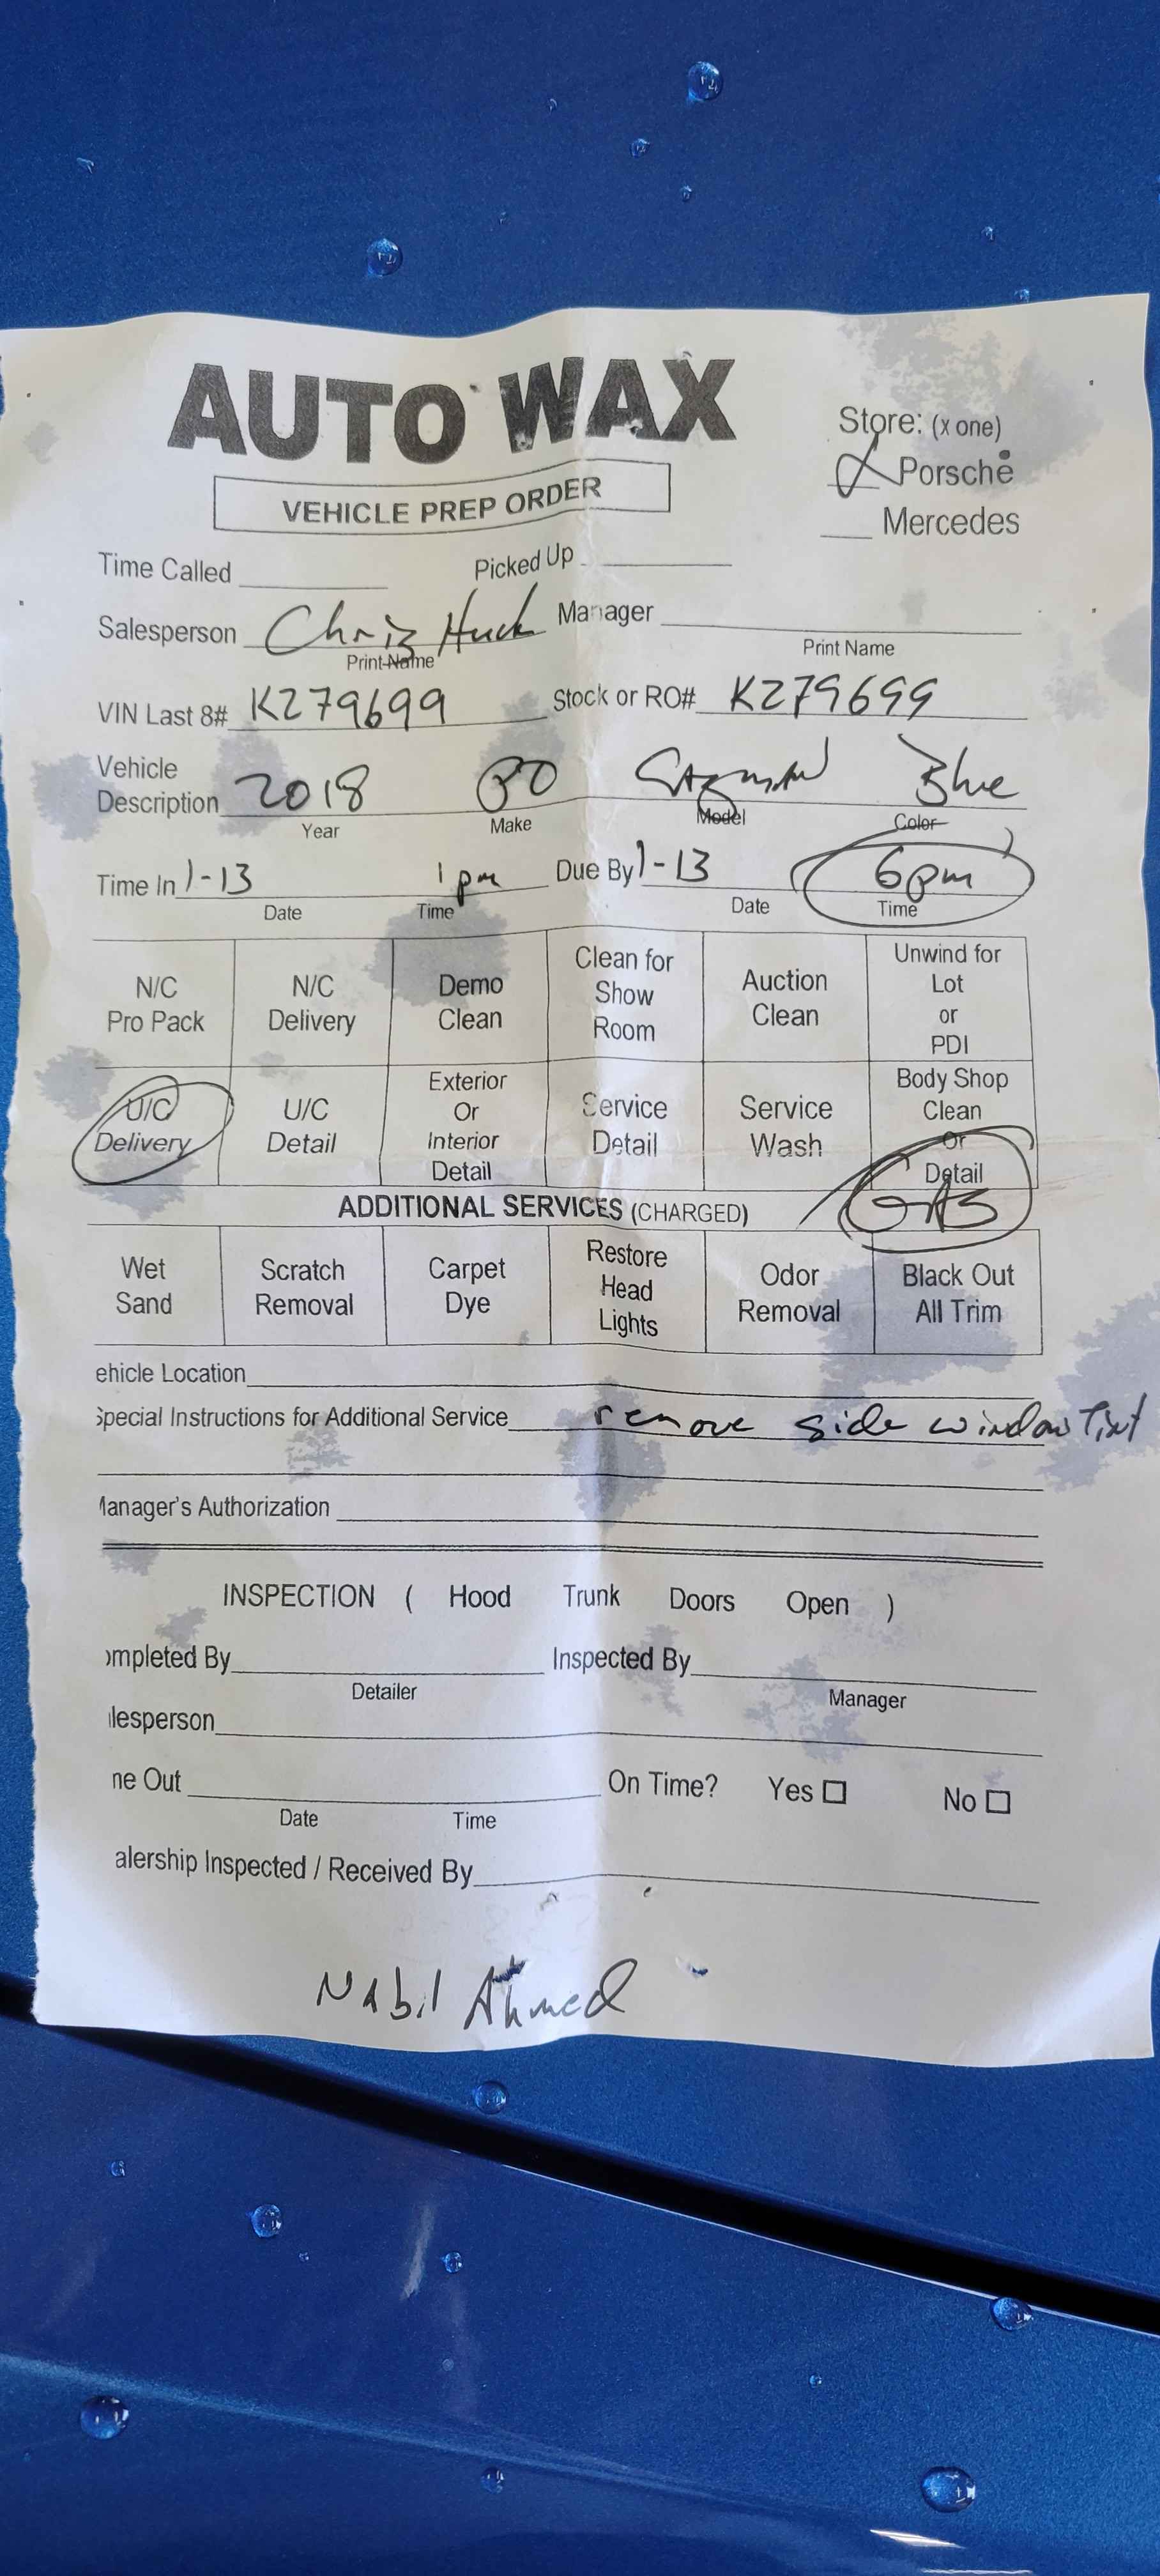 AUTO WAX
VEHICLE PREP ORDER
Store: (x one)
Porsche
Mercedes
Time Called Picked Up
Salesperson Chris Huck Manager
Print Name Print Name
VIN Last 8# K279699 Stock or RO# K279699
Vehicle
Description 2018 PO Cayman Blue
Year Make Model Color
Time In 1-13 1pm Due By 1-13 6pm
Date Time Date Time
N/C Pro Pack N/C Delivery Demo Clean Clean for Show Room Auction Clean Unwind for Lot or PDI
U/C Delivery U/C Detail Exterior Or Interior Detail Service Detail Service Wash Body Shop Clean Or Detail
GAS
ADDITIONAL SERVICES (CHARGED)
Wet Sand Scratch Removal Carpet Dye Restore Head Lights Odor Removal Black Out All Trim
ehicle Location
Special Instructions for Additional Service remove side window Tint
Manager's Authorization
INSPECTION ( Hood Trunk Doors Open )
ompleted By Inspected By
Detailer Manager
lesperson
ne Out On Time? Yes No
Date Time
alership Inspected / Received By
Nabil Ahmed